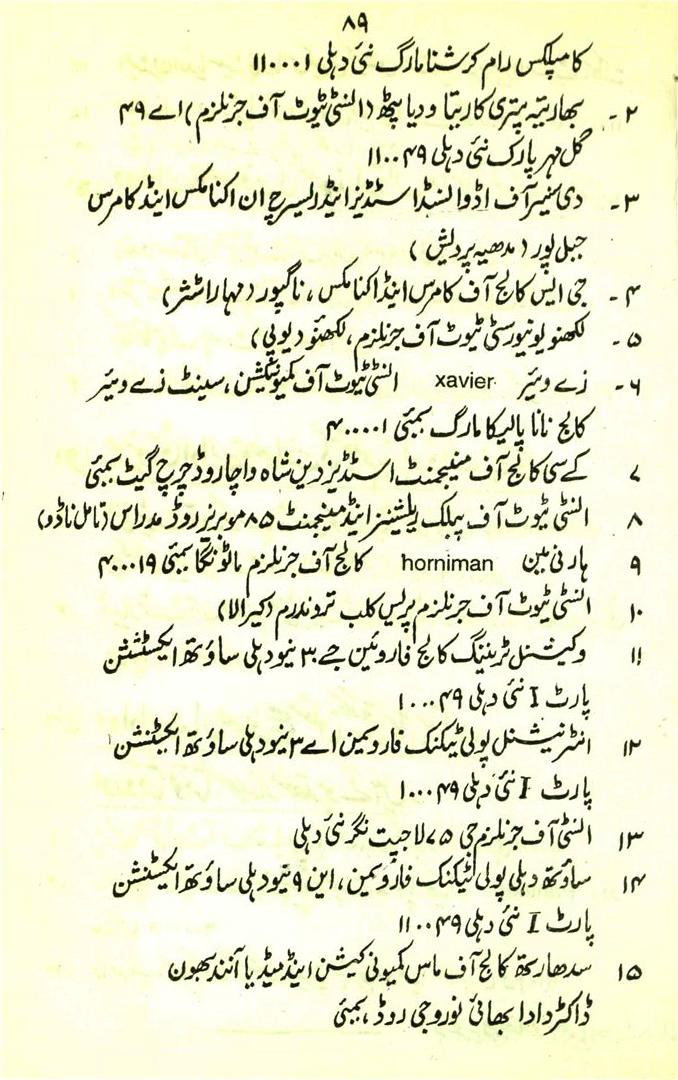 ۸۹
کامپلکس رام کرشنا مارگ نئی دہلی ۱۱۰۰۰۱
۲۔ بھارتیہ پتری کاریتا ودیا پیٹھ (انسٹی ٹیوٹ آف جرنلزم) اے ۴۹
گل مہر پارک نئی دہلی ۱۱۰۰۴۹
۳۔ دی سنیٹر آف اڈوانسڈ اسٹڈیز اینڈ ریسرچ ان اکنامکس اینڈ کامرس
جبل پور (مدھیہ پردیش)
۴۔ جی ایس کالج آف کامرس اینڈ اکنامکس، ناگپور (مہاراشٹر)
۵۔ لکھنو یونیورسٹی ٹیوٹ آف جرنلزم، لکھنؤ (یوپی)
۶۔ زے ویئر xavier انسٹی ٹیوٹ آف کمیونیکیشن، سینٹ زے ویئر
کالج نانا پالیکا مارگ بمبئی ۴۰۰۰۰۱
۷ کے سی کالج آف منیجمنٹ اسٹڈیز دین شاہ واچا روڈ چرچ گیٹ بمبئی
۸ انسٹی ٹیوٹ آف پبلک ریلیشنز اینڈ مینجمنٹ ۸۵ موبریز روڈ مدراس (تامل ناڈو)
۹ ہارنی مین horniman کالج آف جرنلزم ماٹونگا بمبئی ۴۰۰۰۱۹
۱۰ انسٹی ٹیوٹ آف جرنلزم پریس کلب ترونندرم (کیرالا)
۱۱ وکیشنل ٹریننگ کالج فار وئین جے ۳۰ نیو دہلی ساؤتھ ایکسٹنشن
پارٹ I نئی دہلی ۱۰۰۰۴۹
۱۲ انٹرنیشنل پولی ٹیکنک فار ویمین اے ۳ نیو دہلی ساؤتھ ایکٹنشن
پارٹ I نئی دہلی ۱۰۰۰۴۹
۱۳ انسٹی آف جرنلزم جی ۷۵ لاجپت نگر نئی دہلی
۱۴ ساؤتھ دہلی پولی ٹیکنک فار ویمین، این ۹ نیو دہلی ساؤتھ ایکٹنشن
پارٹ I نئی دہلی ۱۱۰۰۴۹
۱۵ سدھارتھ کالج آف ماس کمیونی کیشن اینڈ میڈیا آنند بھون
ڈاکٹر دادا بھائی نوروجی روڈ، بمبئی